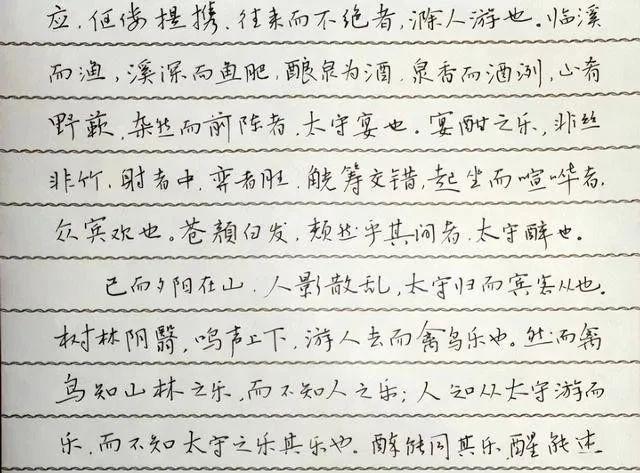 应，伛偻提携，往来而不绝者，滁人游也。临溪
而渔，溪深而鱼肥，酿泉为酒，泉香而酒洌，山肴
野蔌，杂然而前陈者，太守宴也。宴酣之乐，非丝
非竹，射者中，弈者胜，觥筹交错，起坐而喧哗者，
众宾欢也。苍颜白发，颓然乎其间者，太守醉也。
已而夕阳在山，人影散乱，太守归而宾客从也。
树林阴翳，鸣声上下，游人去而禽鸟乐也。然而禽
鸟知山林之乐，而不知人之乐；人知从太守游而
乐，而不知太守之乐其乐也。醉能同其乐，醒能述